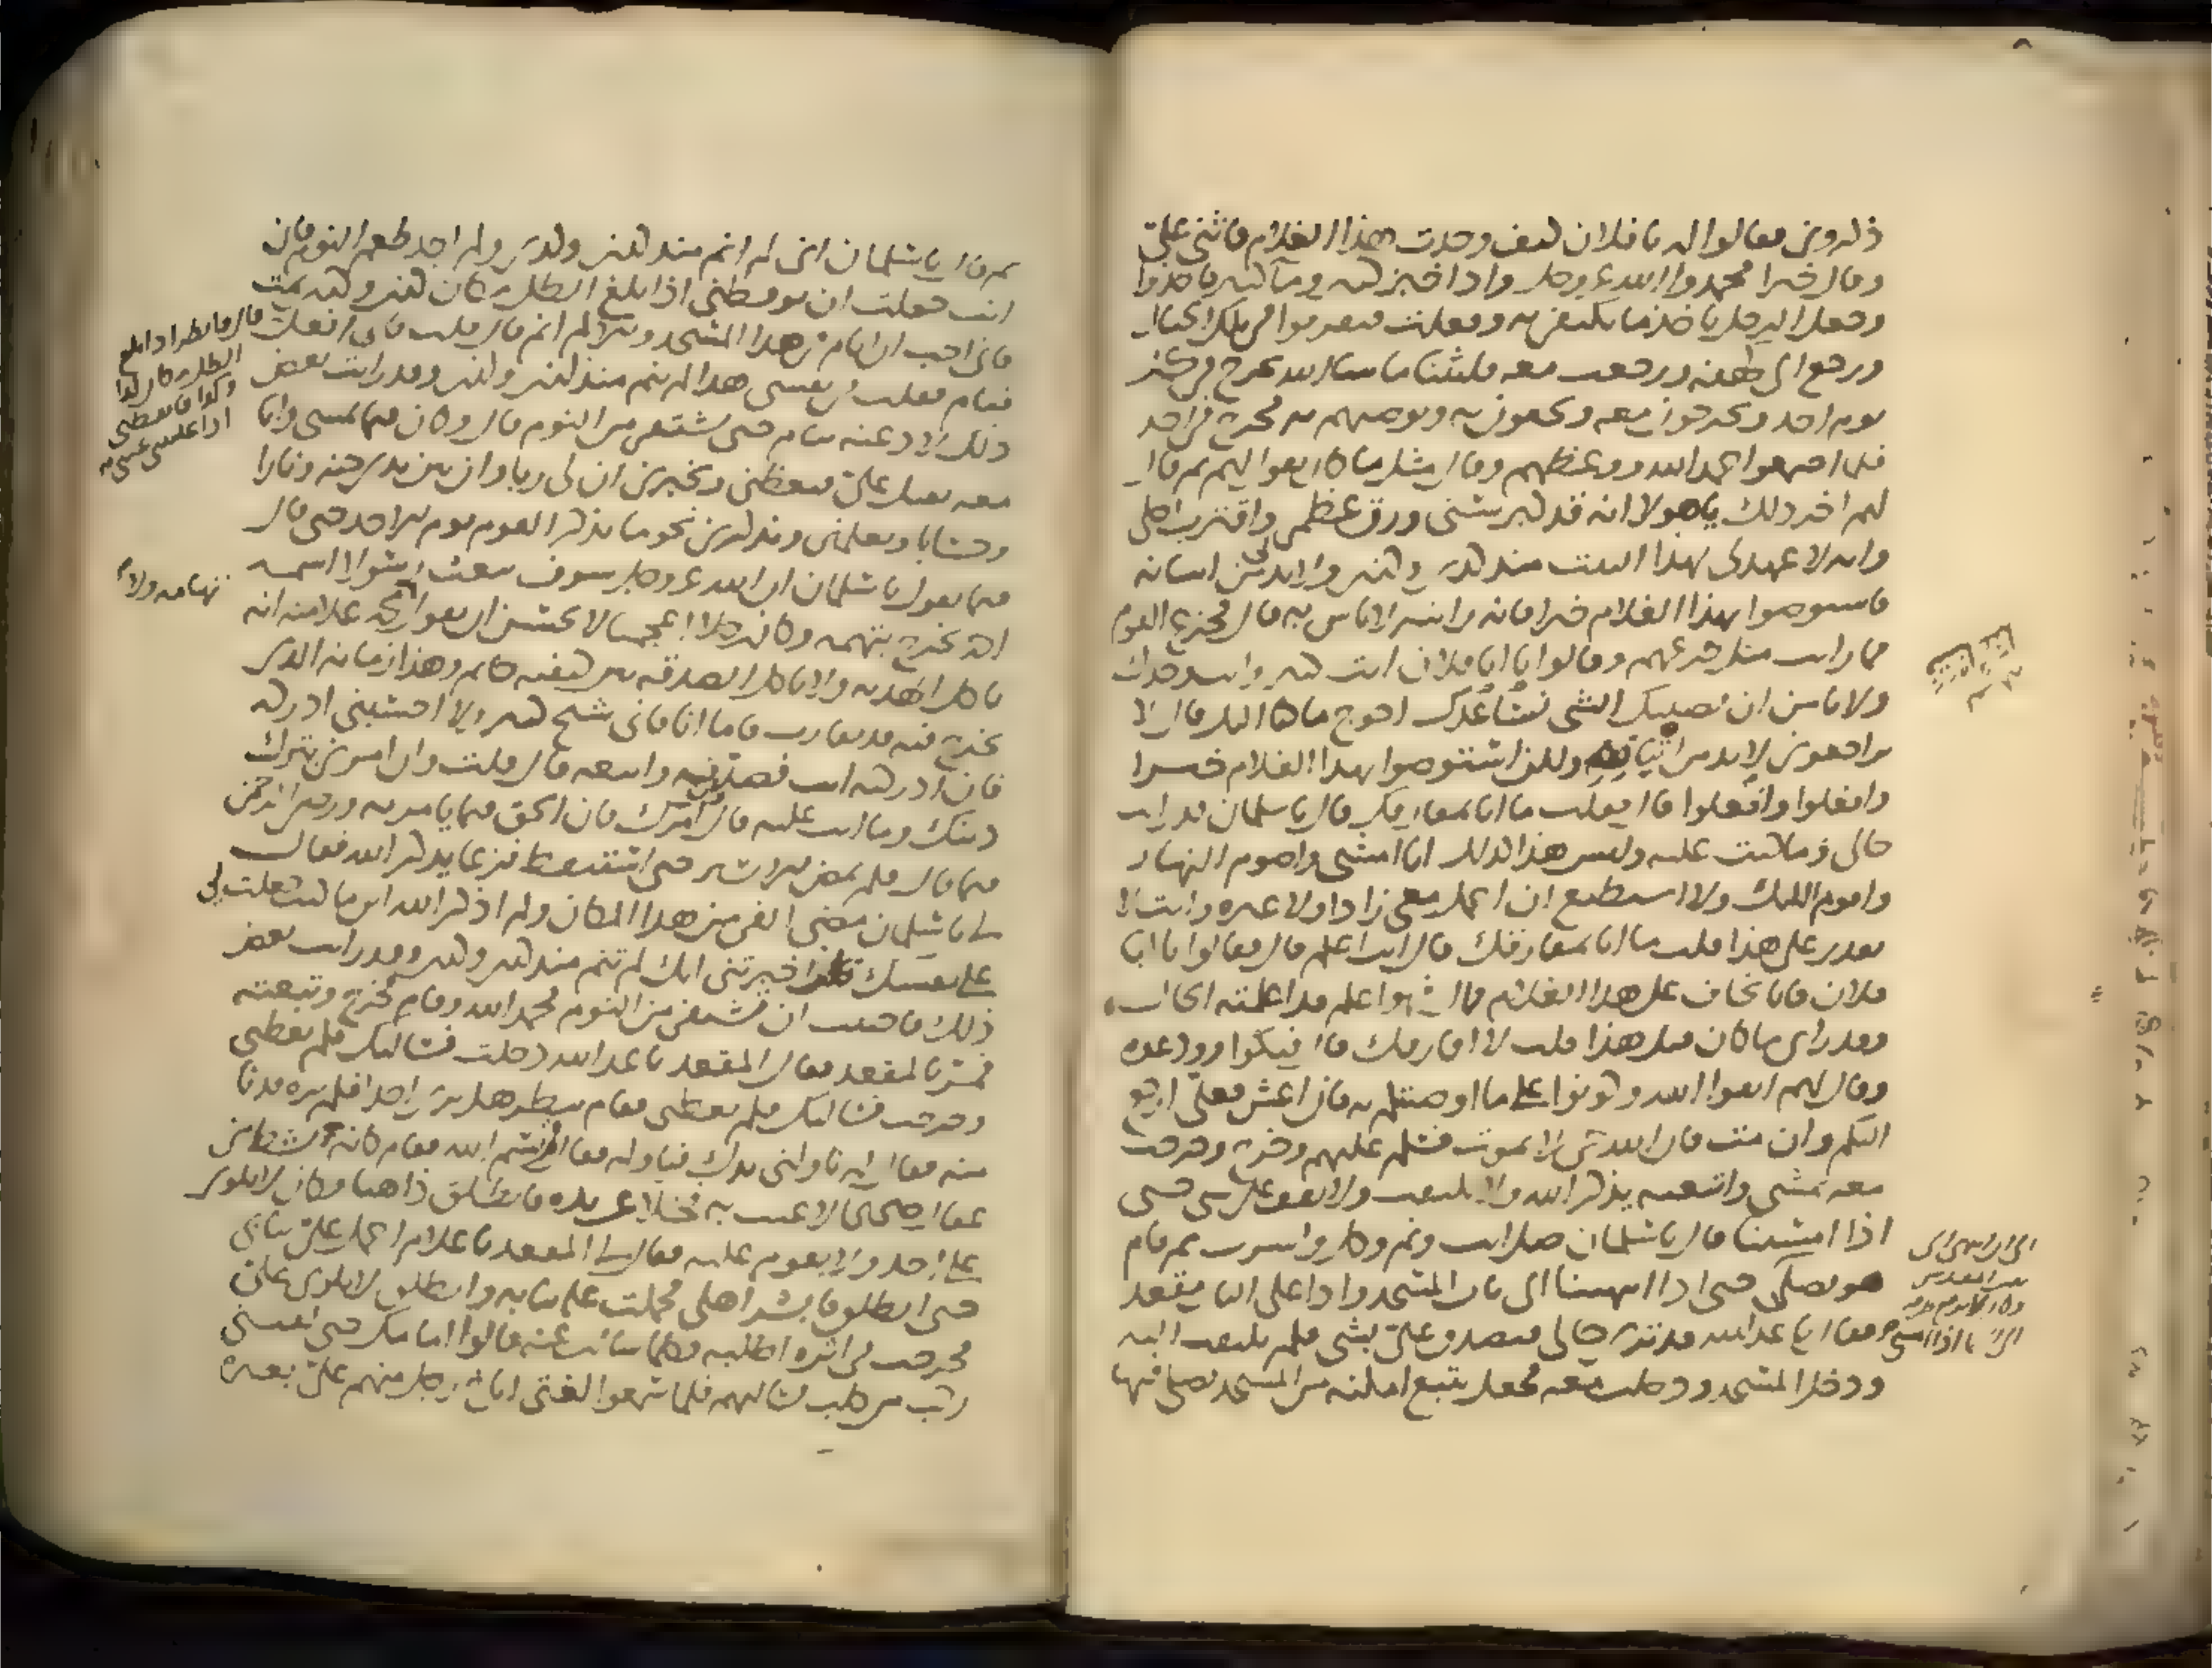 ذكروني فقالوا له يا فلان كيف وجدت هذا الغلام فاثنى علي
وقال خيرا فحمدوا الله عز وجل واذا خبز كثير وماء كثير فاخذوا
وجعل الرجل ياخذ ما يكتفي به وفعلت فتفرقوا في تلك الجبال
ورجع الى كهفه ورجعت معه فلبثنا ما شا الله يخرج في كل
يوم احد ويخرجون معه ويحفون به ويوصيهم به فخرج في احد
فلما اجتمعوا حمد الله ووعظهم وقال مثل ما كان يقول لهم ثم قال
لهم اخر ذلك يا هولا انه قد كبر سني ورق عظمي واقترب اجلي
وانه لا عهد لي بهذا البيت منذ كذى وكذى ولا بد لي من اتيانه
فاستوصوا بهذا الغلام خيرا فاني رايته لا باس به قال فجزع القوم
فما رايت مثل جزعهم وقالوا يا ابا فلان انت كبير وانت وحدك
ولا نامن ان يصيبك الشي نساعدك احوج ما كنا اليك قال لا
تراجعوني لا بد من اتيانه ولكن استوصوا بهذا الغلام خيرا
وافعلوا وافعلوا قال فقلت ما انا بمفارقك قال يا سلمان قد رايت
حالي وما كنت عليه وليس هذا كذلك انا امشي واصوم النهار
واقوم الليل ولا استطيع ان احمل معي زادا ولا غيره وانت لا
تقدر على هذا قلت ما انا بمفارقك قال انت اعلم قال فقالوا يا ابا
فلان فانا نخاف على هذا الغلام قال فهو اعلم قد اعلمته الحال
وقد راى ما كان قبل هذا قلت لا افارقك قال فبكوا وودعوه
وقال لهم اتقوا الله وكونوا على ما اوصيتكم به فان اعش فعلي ارجع
اليكم وان مت فان الله حي لا يموت فسلم عليهم وخرج وخرجت
معه يمشي واتبعته يذكر الله ولا يلتفت ولا يقف على شي حتى
اذا امسينا قال يا سلمان صل انت ونم وكل واشرب ثم قام
هو يصلي حتى اذا انتهينا الى باب المسجد واذا على الباب مقعد
فقال يا عبد الله قد ترى حالي فتصدق علي بشي فلم يلتفت اليه
ودخل المسجد ودخلت معه فجعل يتبع امكنه من المسجد يصلي فيها
ثم قال يا سلمان اني لم انم منذ كذى وكذى ولم اجد طعم النوم فان
انت جعلت ان توقظني اذا بلغ الظل مكان كذى وكذى نمت
فاني احب ان انام في هذا المسجد والا لم انم قال قلت فاني افعل
قال فانظر اذا بلغ
الظل مكان كذا
وكذا فايقظني
اذا غلبتني عيني
فنام فقلت في نفسي هذا لم ينم منذ كذى وكذى وقد رايت بعض
ذلك لادعنه ينام حتى يشتفي من النوم قال وكان فيما يمشي وانا
معه يقبل علي فيعظني ويخبرني ان لي ربا وان بين يدي جنة ونارا
وحسابا ويعلمني ويذكرني نحو ما يذكر القوم يوم الاحد حتى قال
فيما يقول يا سلمان ان الله عز وجل سوف يبعث رسولا اسمه
احمد يخرج بتهمه وكان رجلا اعجميا لا يحسن ان يقول محمد علامته انه
ياكل الهدية ولا ياكل الصدقه بين كتفيه خاتم وهذا زمانه الذي
يخرج فيه قد تقارب فاما انا فاني شيخ كبير ولا احسبني ادركه
فان ادركته انت فصدقه واتبعه قال قلت وان امرني بترك
دينك وما انت عليه قال وان امرك فان الحق فيما يامر به ورضى الرحمن
فيما قال فلم يمض الا يسير حتى استيقظ فزعا يذكر الله فقال
لي يا سلمان مضى الفي من هذا المكان ولم اذكر الله اين ما كنت جعلت لي
على نفسك قلت اخبرتني انك لم تنم منذ كذى وكذى وقد رايت بعض
ذلك فاحببت ان تشتفي من النوم فحمد الله وقام فخرج وتبعته
فمر بالمقعد فقال المقعد يا عبد الله دخلت فسالتك فلم تعطني
وخرجت فسالتك فلم تعطني فقام ينظر هل يرى احدا فلم يره فدنا
منه فقال له ناولني يدك فناوله فقال قم بسم الله فقام كانه نشط من
عقال صحيحا لا عيب به فخلا عن يده فانطلق ذاهبا وكان لا يلوي
على احد ولا يقوم عليه فقال لي المقعد يا غلام احمل علي ثيابي
حتى انطلق فابشر اهلي فحملت عليه ثيابه وانطلق لا يلوي علي
فخرجت في اثره اطلبه فكلما سالت عنه قالوا امامك حتى لقيني
ركب من كلب فسالتهم فلما سمعوا الفتى اناخ رجل منهم علي بعيره